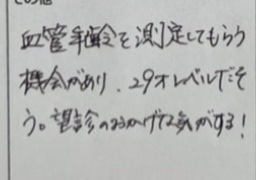 その他
血管年齢を測定してもらう
機会があり、29才レベルだそ
う。望診のおかげな気がする!